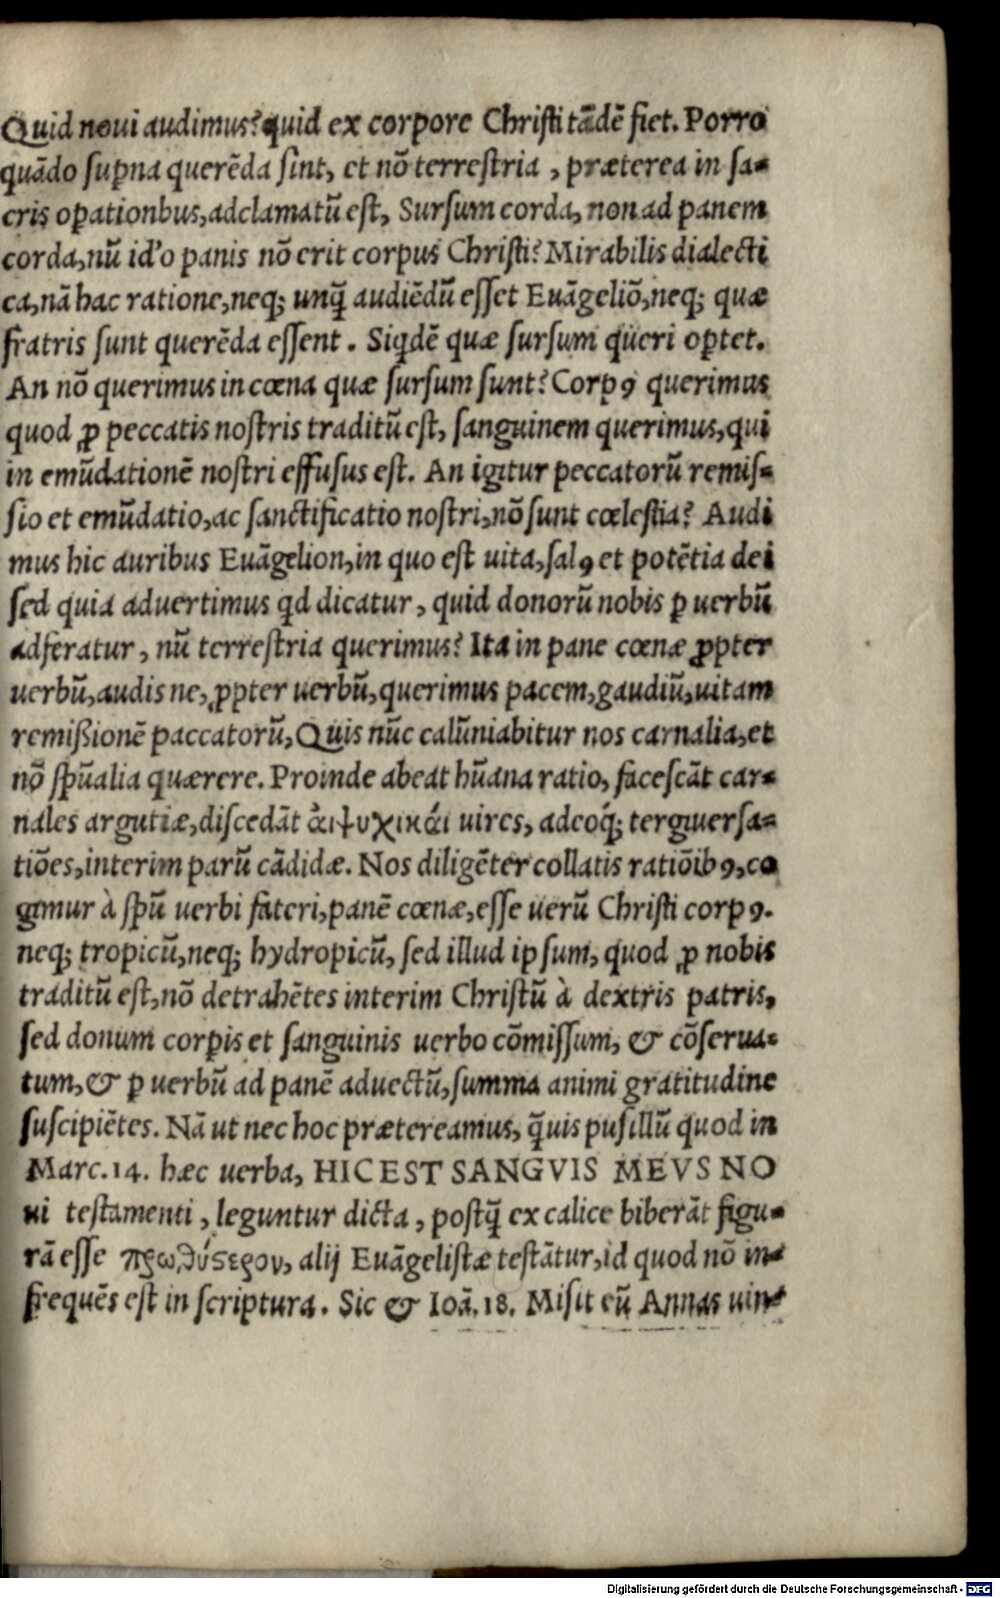 Quid noui audimus? quid ex corpore Christi tādē fiet. Porro
quādo suꝑna querēda sint, et nō terrestria, præterea in sa-
cris oꝑationbus, adclamatū est, Sursum corda, non ad panem
corda, nū id'o panis nō erit corpus Christi? Mirabilis dialecti
ca, nā hac ratione, neq; unq̄ audiēdū esset Euāgeliō, neq; quæ
fratris sunt querēda essent. Siqdē quæ sursum queri oꝑtet.
An nō querimus in cœna quæ sursum sunt? Corpꝰ querimus
quod ꝓ peccatis nostris traditū est, sanguinem querimus, qui
in emūdationē nostri effusus est. An igitur peccatorū remis-
sio et emūdatio, ac sanctificatio nostri, nō sunt cœlestia? Audi
mus hic auribus Euāgelion, in quo est uita, salꝰ et potētia dei
sed quia aduertimus qd dicatur, quid donorū nobis ꝑ uerbū
adferatur, nū terrestria querimus? Ita in pane cœnæ ꝓpter
uerbū, audis ne, ꝓpter uerbū, querimus pacem, gaudiū, uitam
remißionē paccatorū, Quis nūc calūniabitur nos carnalia, et
nō spūalia quærere. Proinde abeat hūana ratio, facescāt car-
nales argutiæ, discedāt ἁι ψυχικάι uires, adeoq́; tergiuersa-
tiōes, interim parū cādidæ. Nos diligēter collatis ratiōibꝰ, co
gimur à spū uerbi fateri, panē cœnæ, esse uerū Christi corpꝰ.
neq; tropicū, neq; hydropicū, sed illud ipsum, quod ꝓ nobis
traditū est, nō detrahētes interim Christū à dextris patris,
sed donum corꝑis et sanguinis uerbo cōmissum, & cōserua-
tum, & ꝑ uerbū ad panē aduectū, summa animi gratitudine
suscipiētes. Nā ut nec hoc prætereamus, q̄uis pusillū quod in
Marc. 14. hæc uerba, HIC EST SANGVIS MEVS NO
ui testamenti, leguntur dicta, postq̄ ex calice biberāt figu-
rā esse πρωθύστερον, alij Euāgelistæ testātur, id quod nō in-
frequēs est in scriptura. Sic & Ioā. 18. Misit eū Annas uin-
Digitalisierung gefördert durch die Deutsche Forschungsgemeinschaft - DFG